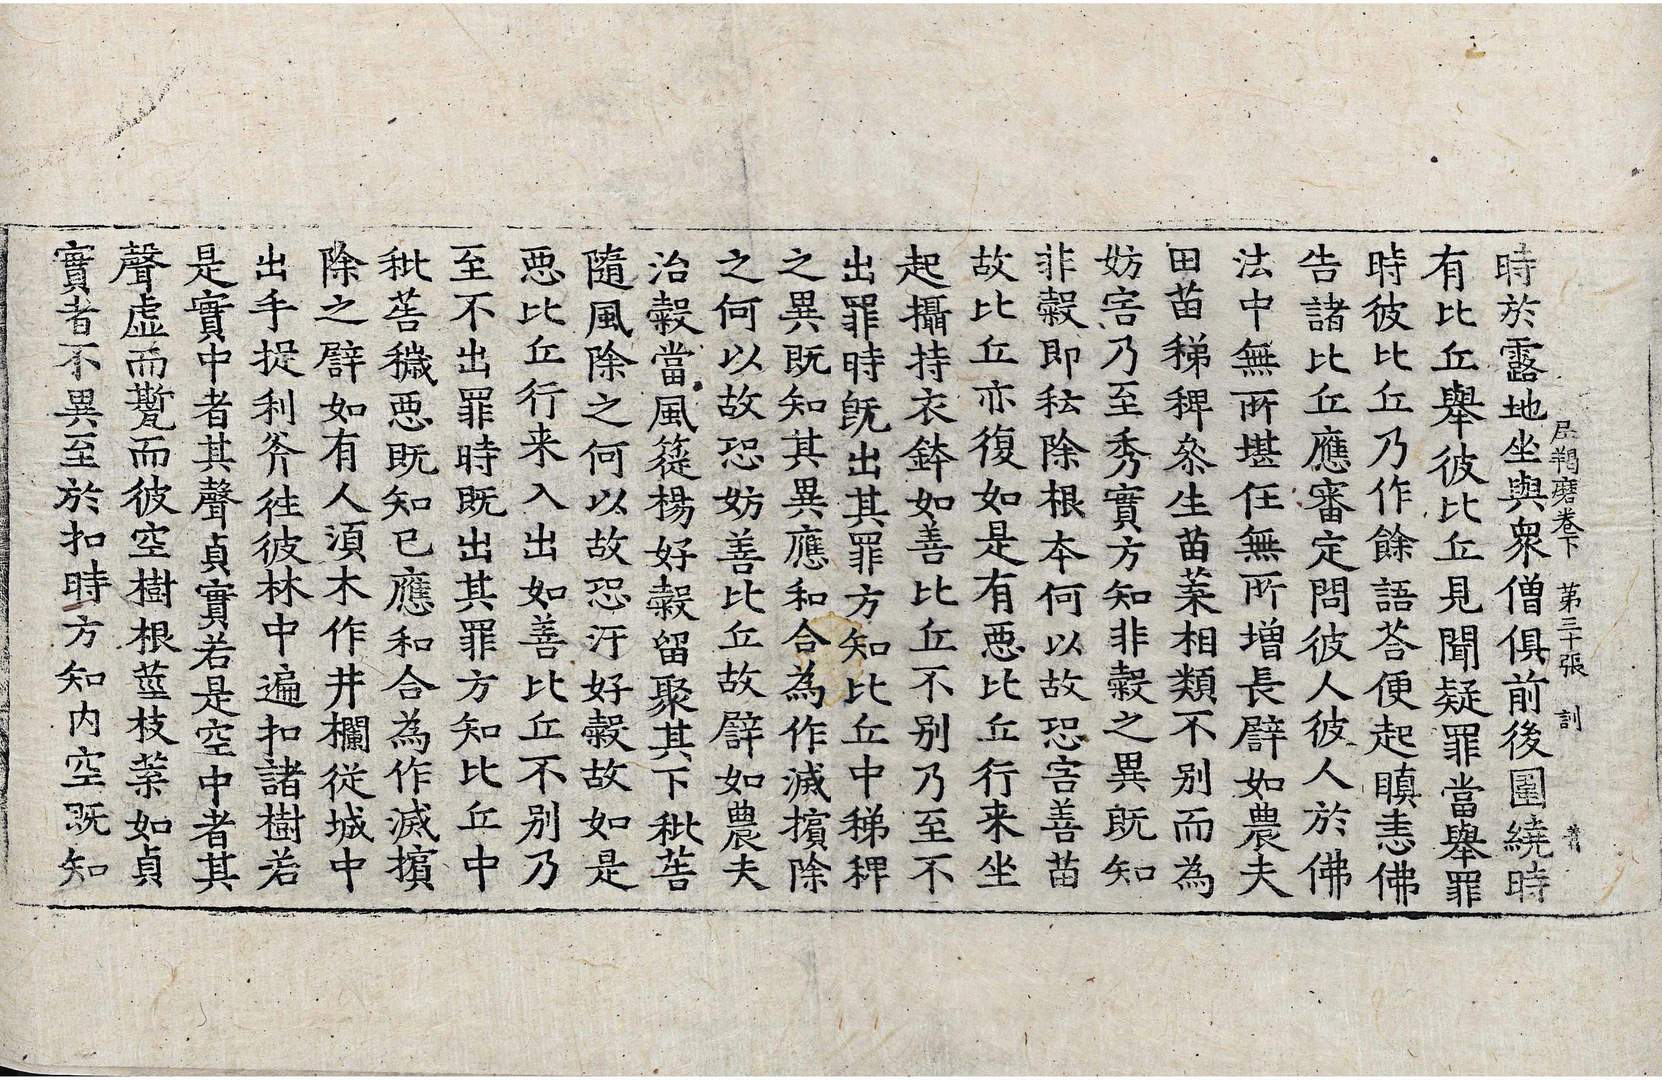 尼羯磨卷下　第三十張　訓
時於露地坐與衆僧俱前後圍繞時
有比丘舉彼比丘見聞疑罪當舉罪
時彼比丘乃作餘語荅便起瞋恚佛
告諸比丘應審定問彼人彼人於佛
法中無所堪任無所增長譬如農夫
田苗稊稗叅生苗葉相類不别而為
妨害乃至秀實方知非糓之異旣知
非糓即耘除根本何以故恐害善苗
故比丘亦復如是有惡比丘行来坐
起攝持衣鉢如善比丘不别乃至不
出罪時旣出其罪方知比丘中稊稗
之異旣知其異應和合為作滅擯除
之何以故恐妨善比丘故譬如農夫
治糓當風簁楊好糓留聚其下秕䅳
隨風除之何以故恐汙好糓故如是
惡比丘行来入出如善比丘不别乃
至不出罪時旣出其罪方知比丘中
秕䅳穢惡旣知已應和合為作滅擯
除之譬如有人須木作井欄從城中
出手捉利斧徃彼林中遍扣諸樹若
是實中者其聲貞實若是空中者其
聲虛而𤮕而彼空樹根莖枝葉如貞
實者不異至於扣時方知内空旣知